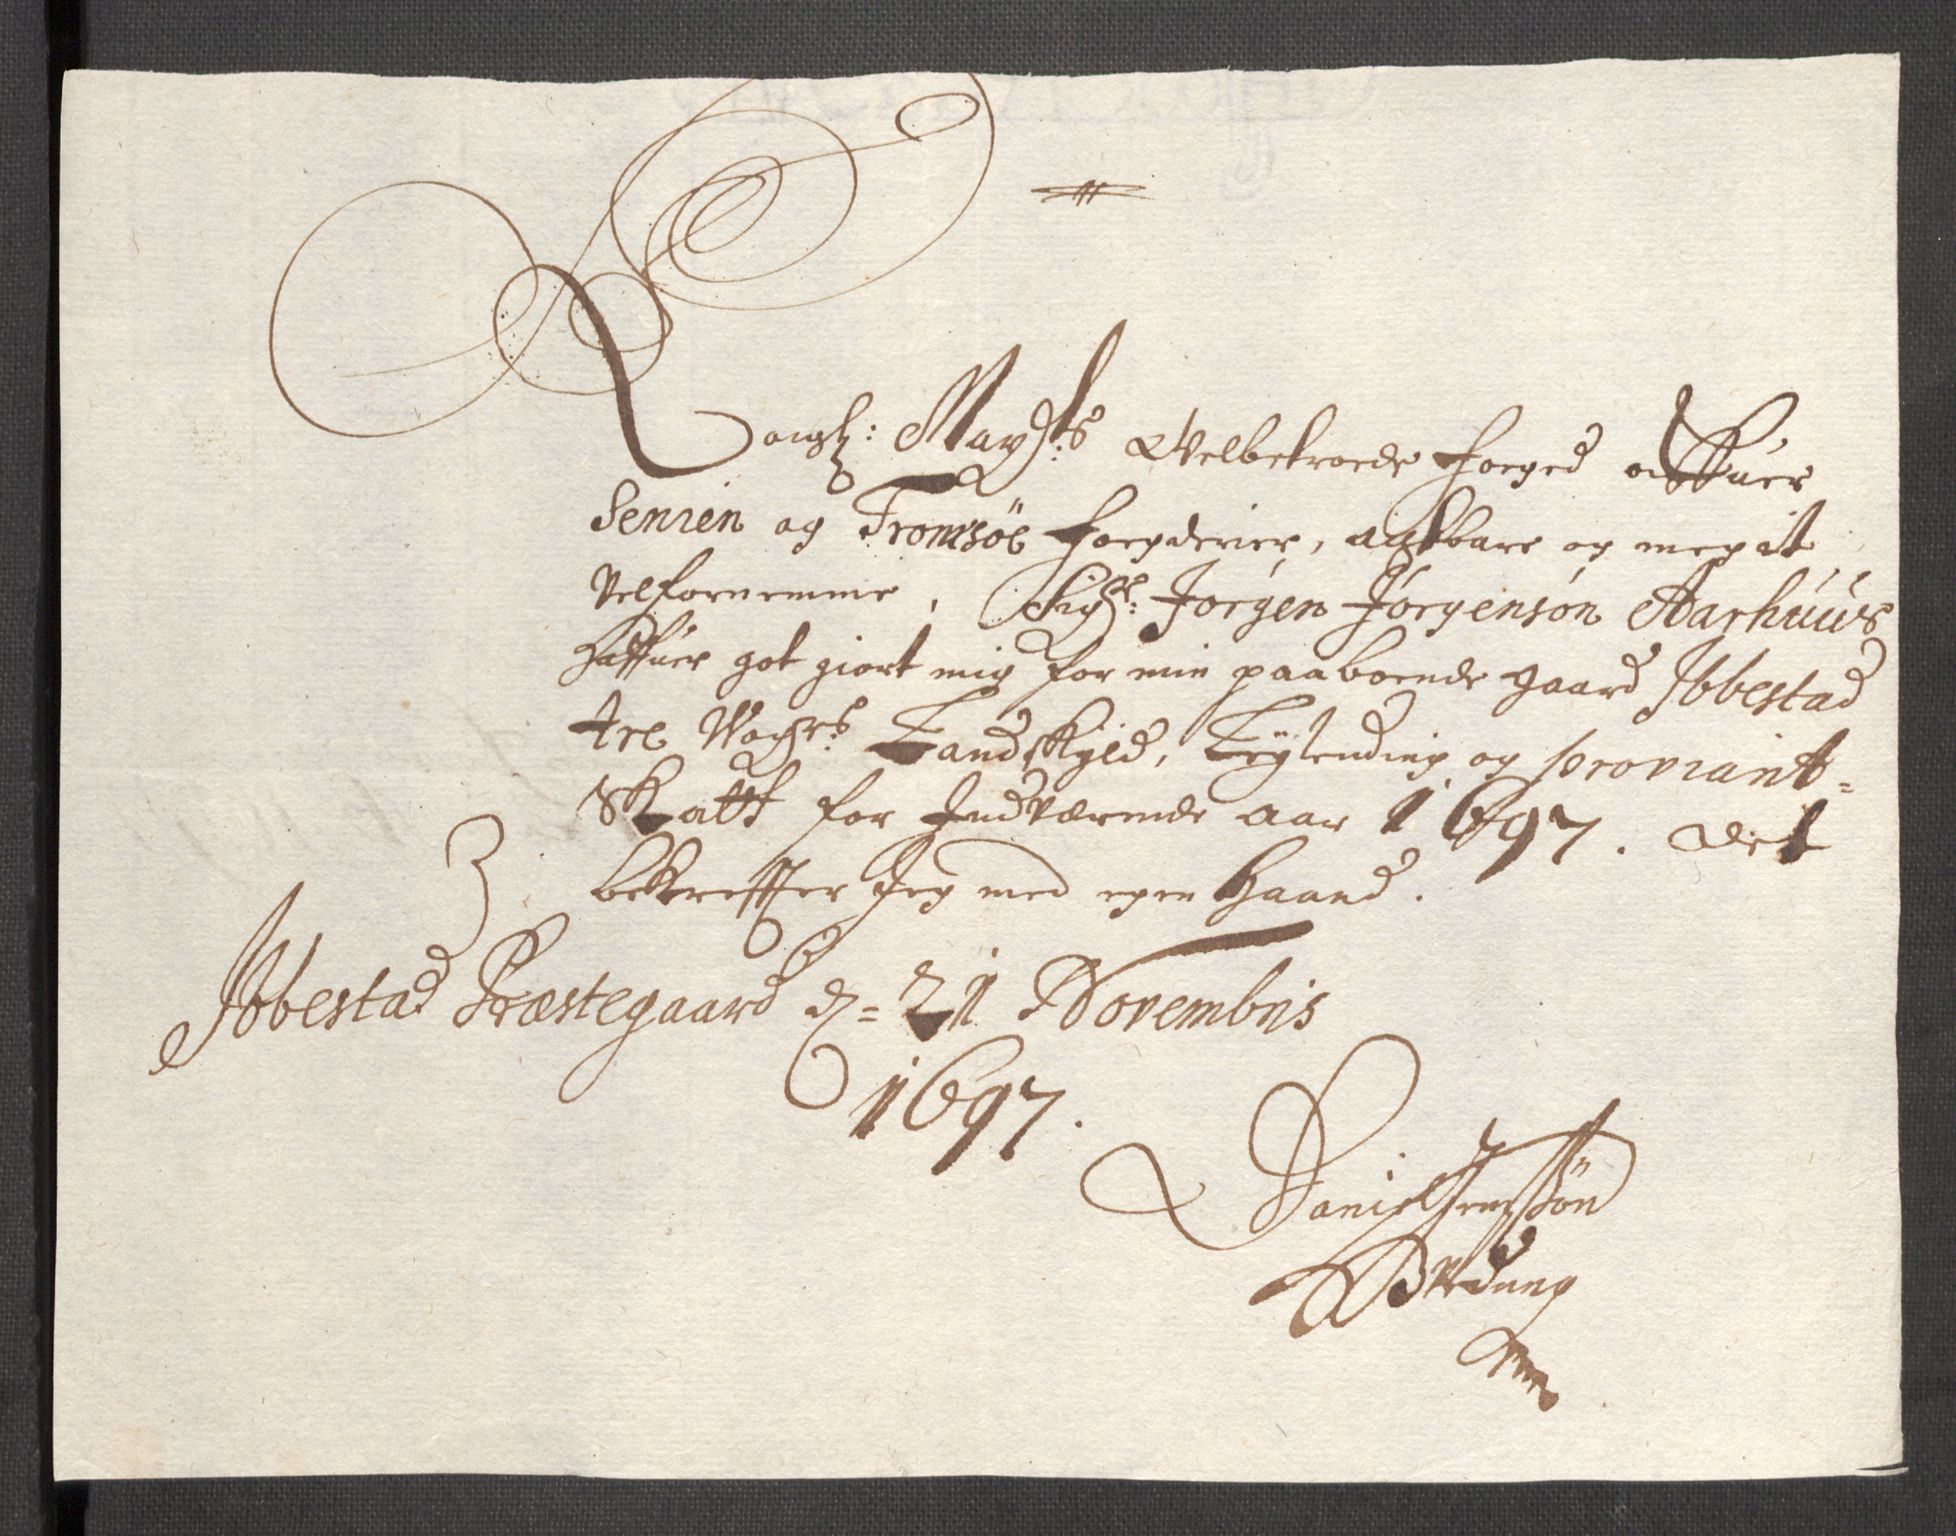 Kongl: Mayts: Velbetroede Foeged offuer
Senien og Tromsöe Foegderier, agtbare og megit
Velfornemme, Sigr: Jørgen Jørgensøn Aarhuus
haffuer got giort mig for min paaboende gaard Ibbestad
tre Wogrs: Landskyld, Leylending og proviant-
Skatt for Indværende aar 1697. Det
bekreffter Jeg med egen Haand.
Ibbestad Præstegaard d= 21 Novembris
1697.
Daniel Jenssön